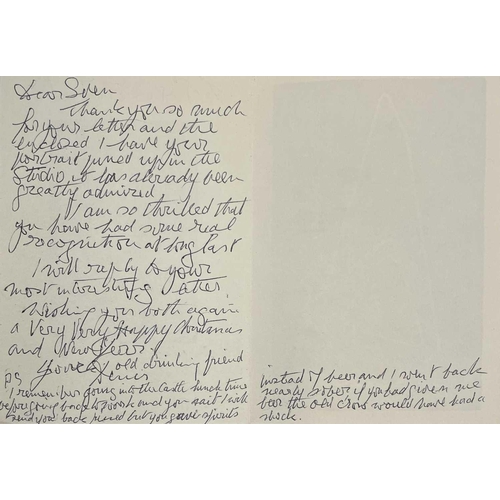 Dear Sven
Thank you so much
for your letter and the
enclosed I have your
portrait pined up in the
Studio, it has already been
greatly admired
I am so thrilled that
you have had some real
recognition at long last
I will reply to your
most interesting letter
Wishing you both again
a Very Very Happy Christmas
and New
Your old drinking friend
PS
I remember going into the Castle lunch time
before going back to work and you said I will
send you back pissed but you gave spirits
instead of beer and I went back
nearly sober if you had given me
beer the old Crow would have had a
shock.